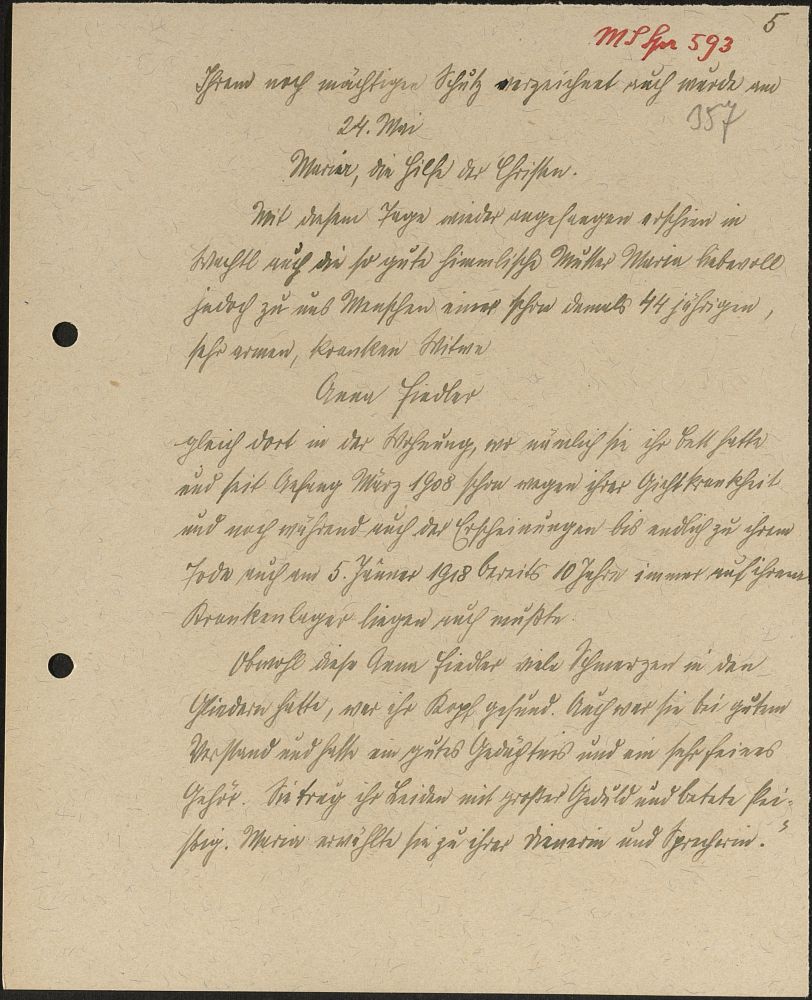 5
MS Spr 593
Ihrem noch mächtigen Schutz verzeichnet auch wurde am
357
24. Mai
Maria, die Hilfe der Christen.
Mit diesem Tage wieder angefangen erschien in
Wachtl auch die so gute himmlische Mutter Maria liebevoll
jedoch zu uns Menschen einer schon damals 44 jährigen,
sehr armen, kranken Witwe
Anna Fiedler
gleich dort in der Wohnung, wo nämlich sie ihr Bett hatte
und seit Anfang März 1908 schon wegen ihrer Gichtkrankheit
und noch während auch der Erscheinungen bis endlich zu ihrem
Tode auch am 5. Jänner 1918 bereits 10 Jahre immer auf ihrem
Krankenlager liegen auch mußte.
Obwohl diese Anna Fiedler viele Schmerzen in den
Gliedern hatte, war ihr Kopf gesund. Auch war sie bei gutem
Verstand und hatte ein gutes Gedächtnis und ein sehr feines
Gehör. Sie trug ihr Leiden mit großer Geduld und betete flei-
ßig. Maria erwählte sie zu ihrer Dienerin und Sprecherin."